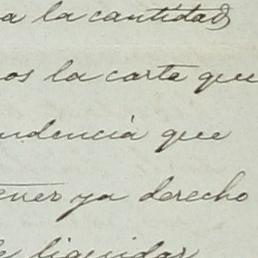 a la cantidad
os la carta que
ndencia que
ener ya derecho
liquidar